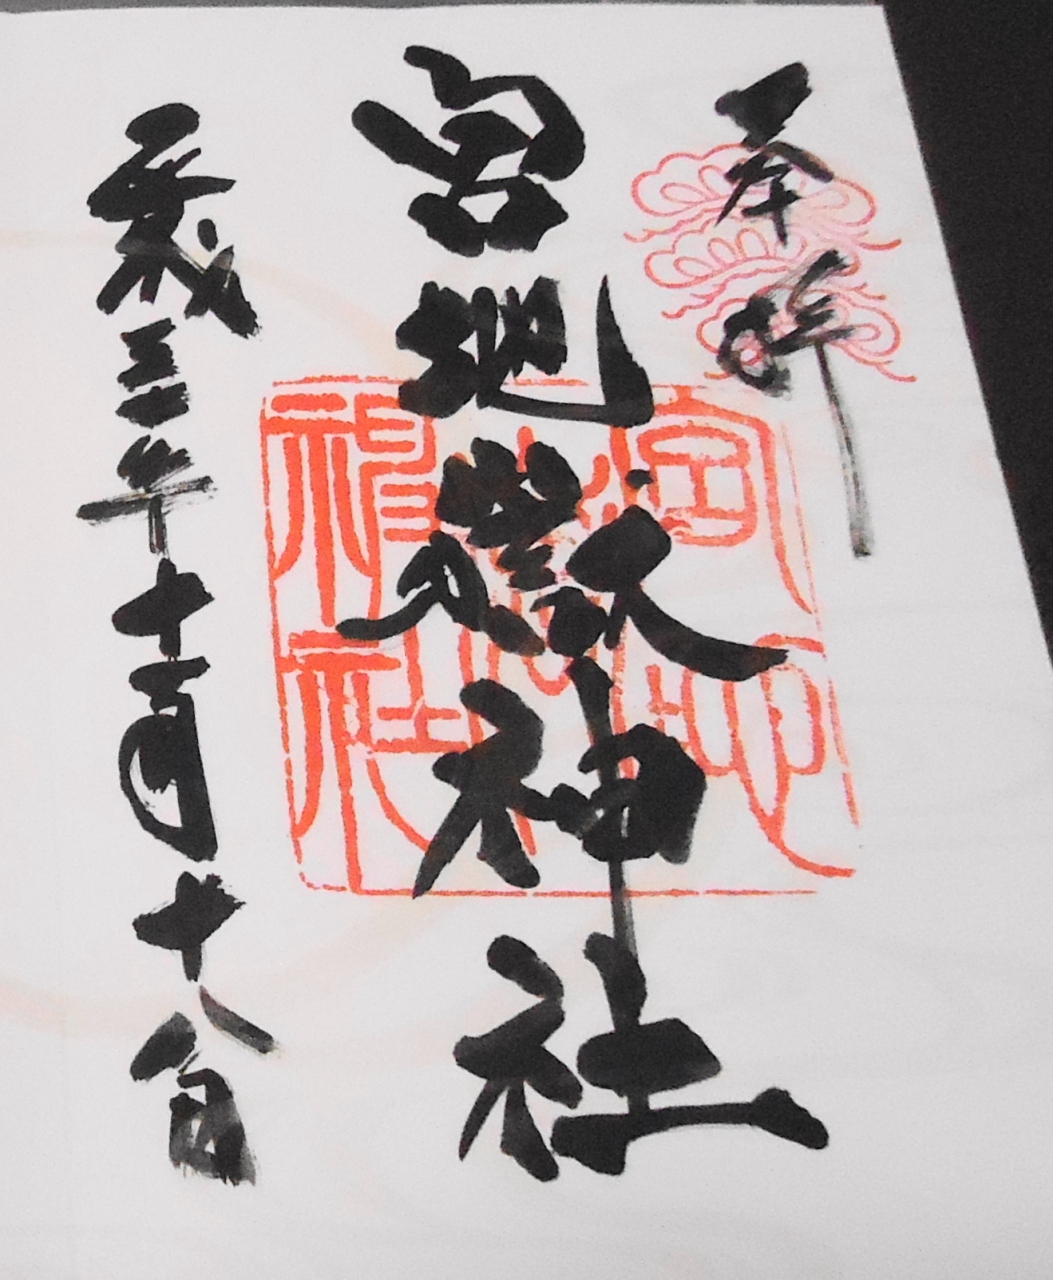 奉拝
宮地嶽神社
宮地嶽神社
平成 年十一月十八日